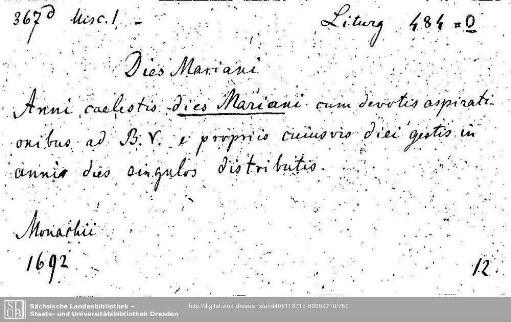 367d Misc. 1 - Liturg 484 = 0
Dies Mariani
Anni caelestis dies Mariani cum devotis aspirati-
onibus ad B. V. e propriis cuiusvis diei gestis in
annis dies singulos distributis.
Monachii
1692
12.
Sächsische Landesbibliothek –
Staats- und Universitätsbibliothek Dresden